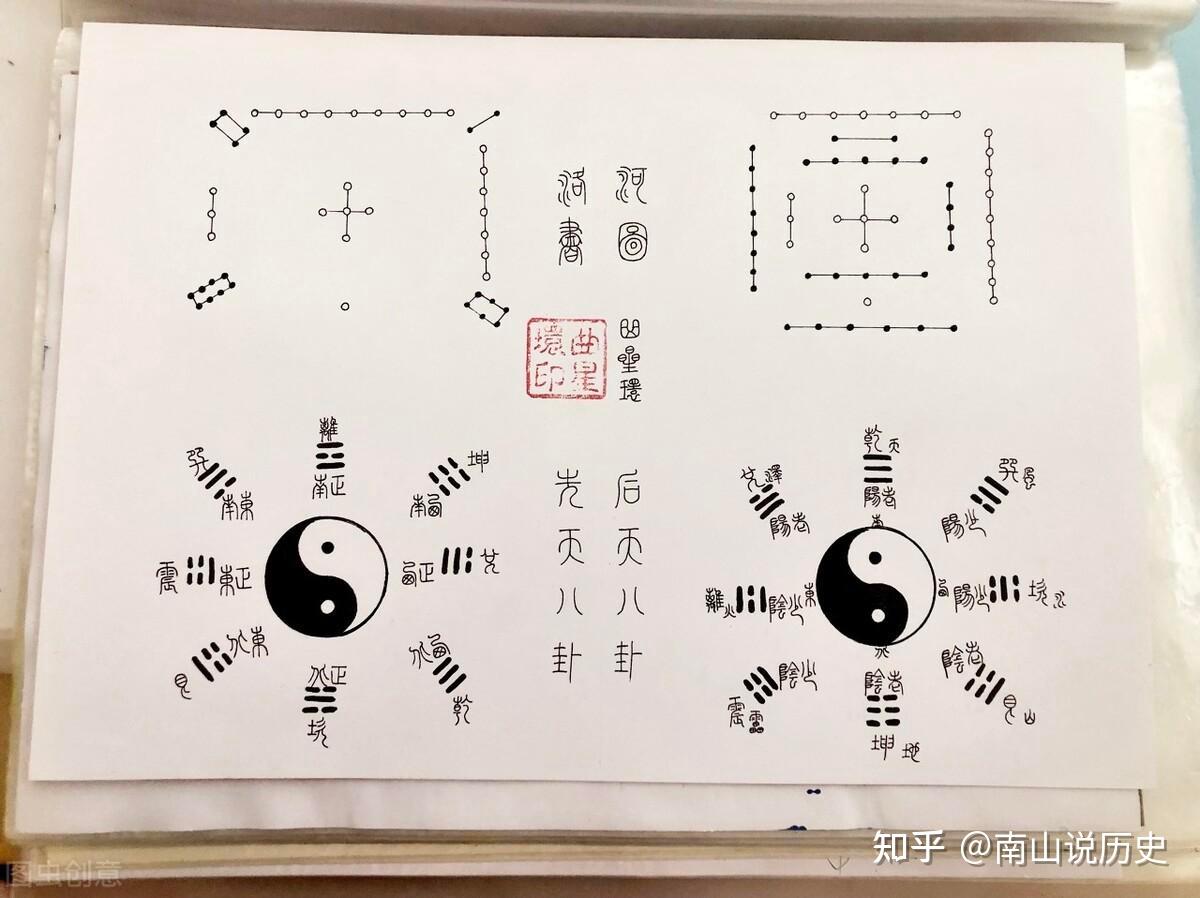 洛書
河圖
曲星環
曲星環印
先天八卦
后天八卦
離
正南
巽
東南
坤
西南
震
正東
兌
正西
艮
東北
坎
正北
乾
西北
乾天
老陽
兌澤
老陽
巽風
少陽
離火
少陰
東
西
少陽
坎水
震雷
少陰
北
老陰
坤地
老陰
艮山
知乎 @南山说历史
图虫创意